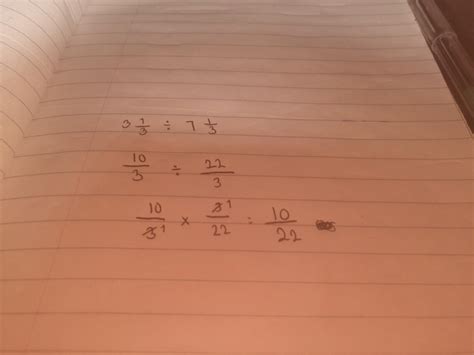 3 1/3 ÷ 7 1/3
10/3 ÷ 22/3
10/3 1 × 3 1/22 = 10/22